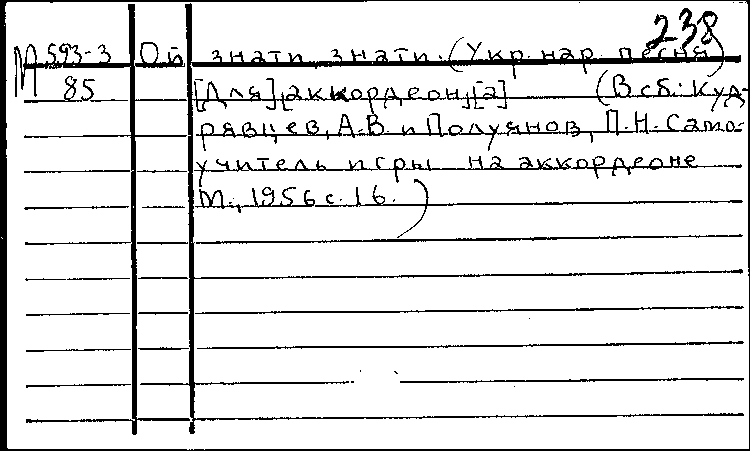 238
М 593-3 Ой знати, знати. (Укр. нар. песня)
85 [Для] аккордеон[а] (В сб.: Куд-
рявцев, А.В. и Полуянов, П.Н. Само-
учитель игры на аккордеоне
М., 1956 с. 16.)